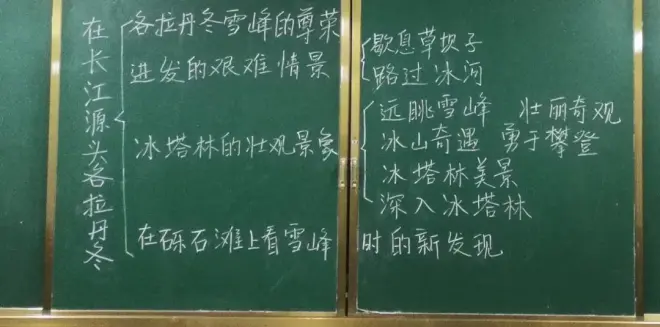 在长江源头各拉丹冬
各拉丹冬雪峰的尊荣
进发的艰难情景
歇息草坝子
路过冰河
冰塔林的壮观景象
远眺雪峰 壮丽奇观
冰山奇遇 勇于攀登
冰塔林美景
深入冰塔林
在砾石滩上看雪峰时的新发现